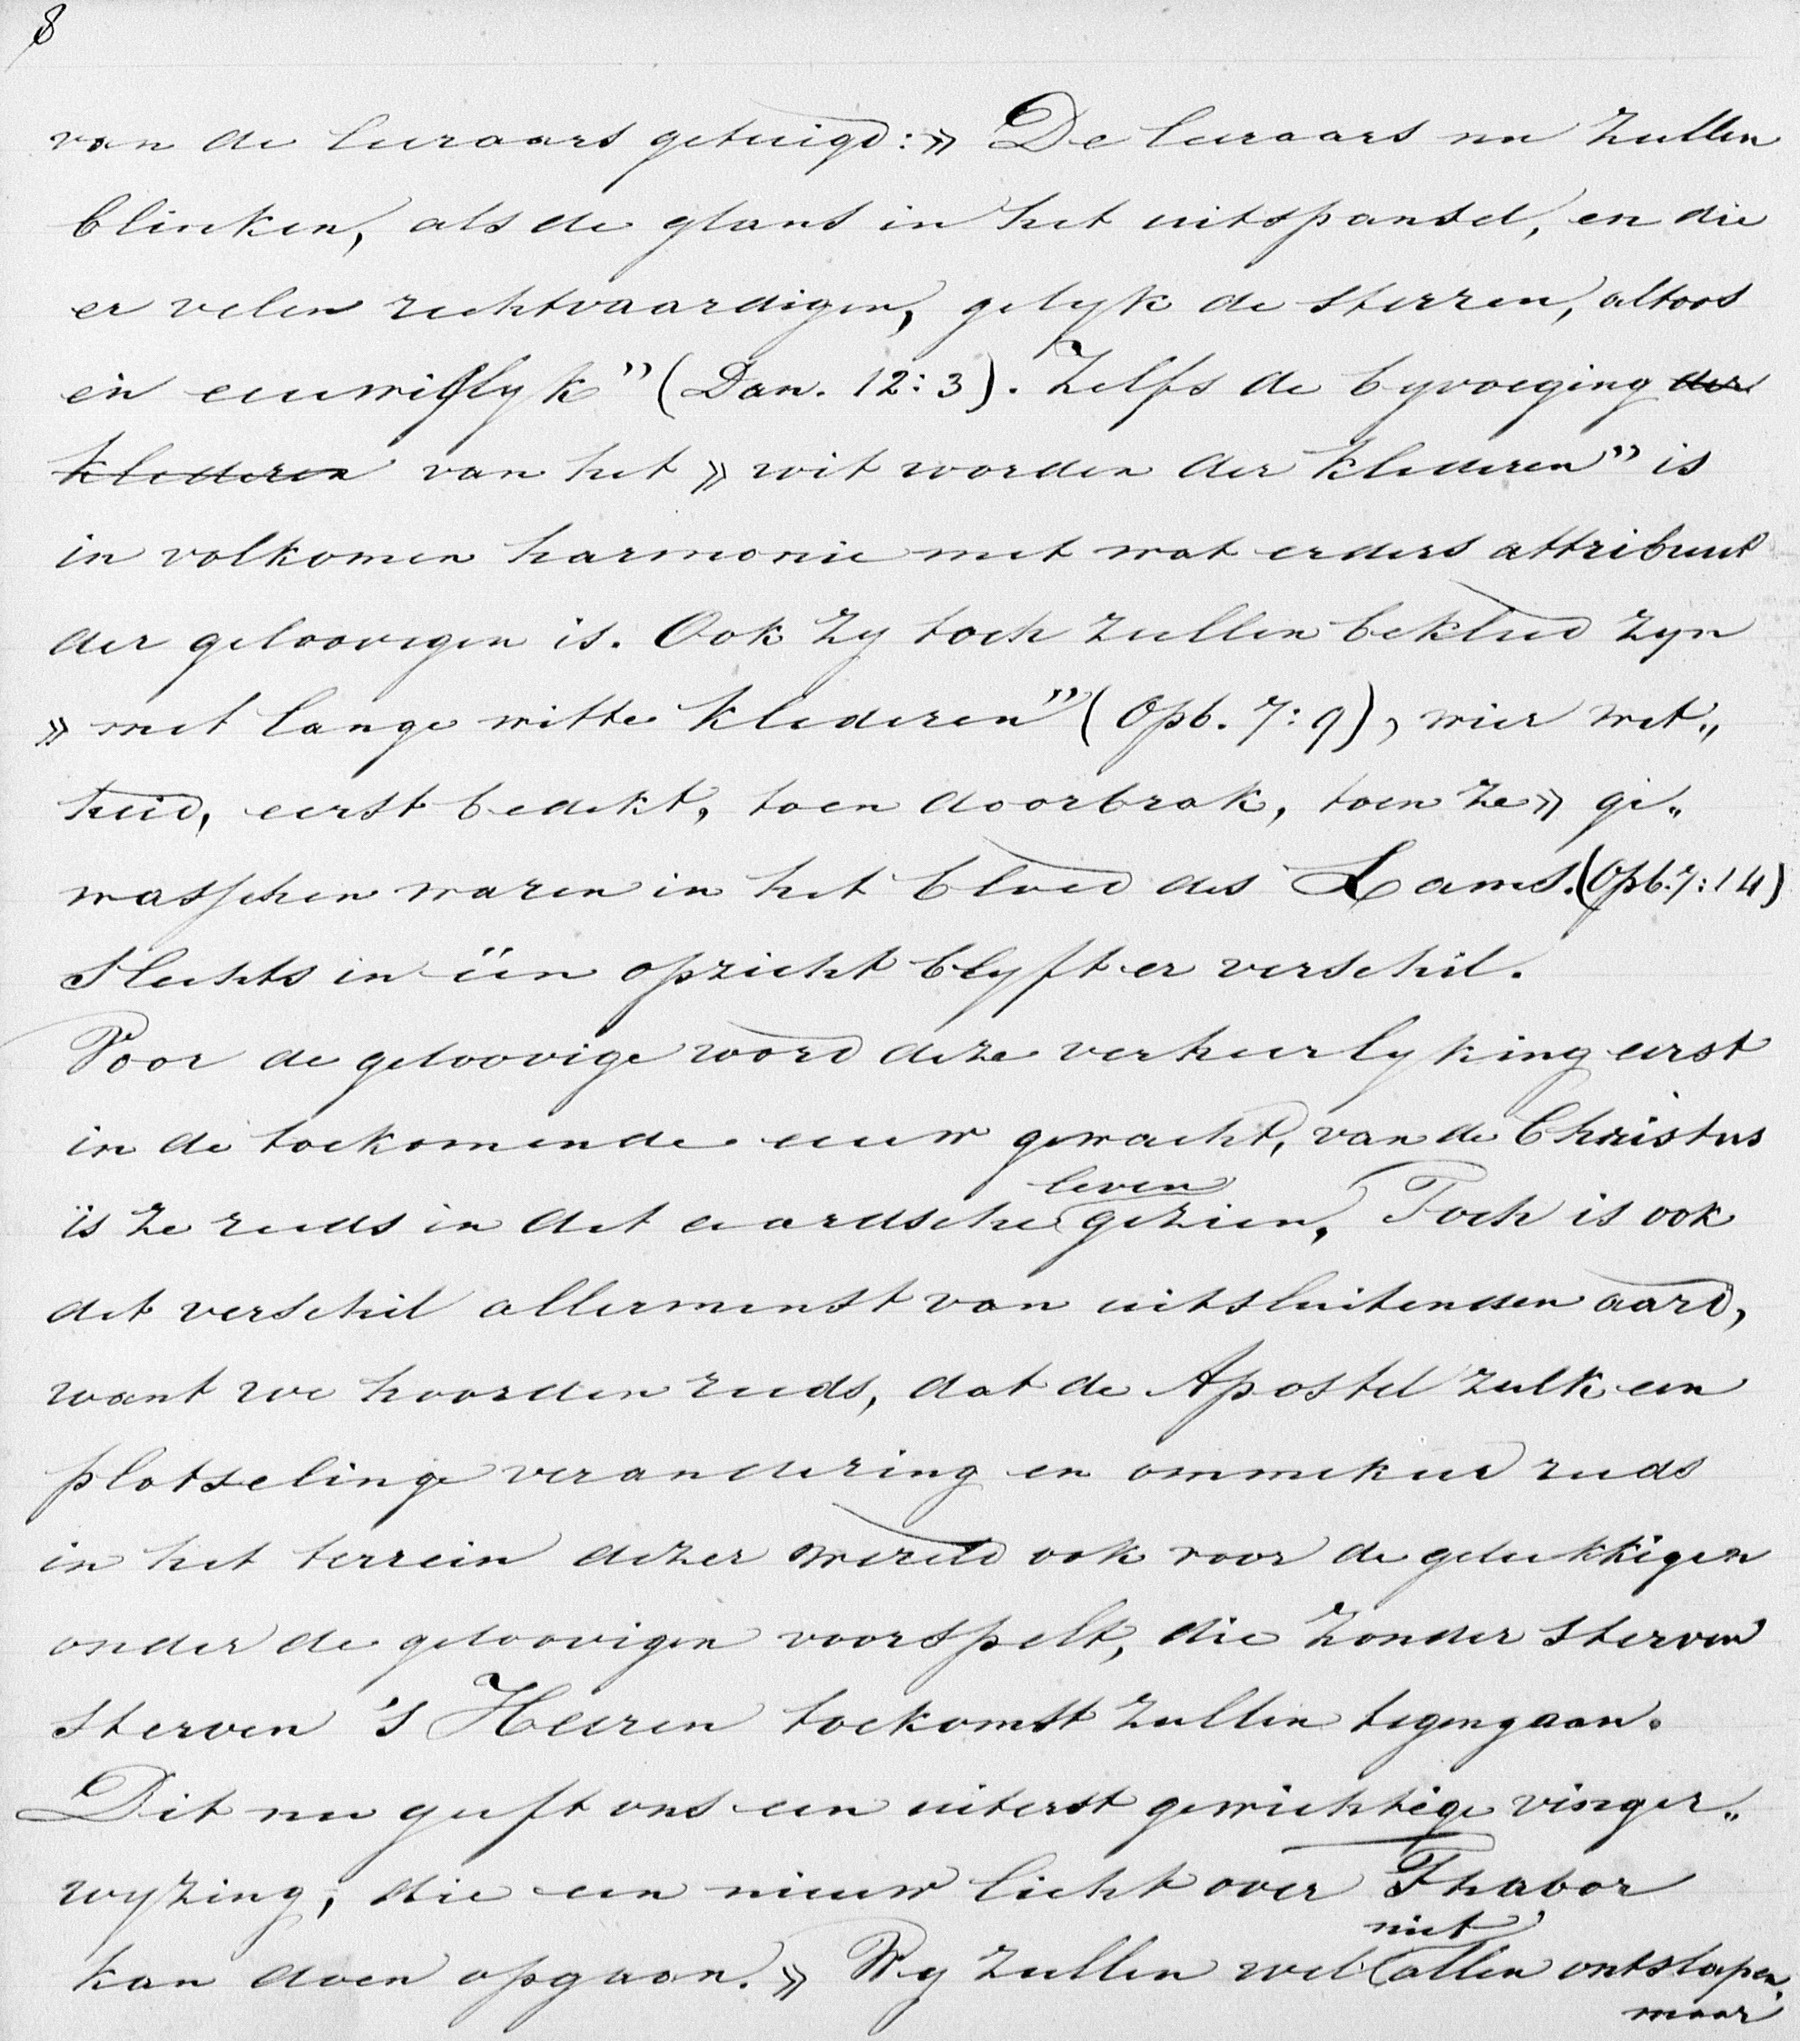 8
van de leeraars getuigd: » De leeraars nu zullen
blinken, als de glans in het uitspansel, en die
er velen rechtvaardigen, gelyk de sterren, altoos
en eeuwiglyk” (Dan. 12:3). Zelfs de byvoeging der
klederen van het » wit worden der klederen” is
in volkomen harmonie met wat erders attribuut
der geloovigen is. Ook zy toch zullen bekleed zyn
» met lange witte klederen” (Opb. 7:9), wier wit„
heid, eerst bedekt, toen doorbrak, toen ze » ge„
wasschen waren in het bloed des Lams. (Opb. 7:14)
Slechts in één opzicht blyft er verschil.
Voor de geloovige word deze verheerlyking eerst
in de toekomende eeuw gewacht, van de Christus
is ze reeds in dit aardsche leven gezien. Toch is ook
dit verschil allerminst van uitsluitenden aard,
want we hoorden reeds, dat de Apostel zulk een
plotselinge verandering en ommekeer reeds
in het terrein dezer wereld ook voor de gelukkigen
onder de geloovigen voorspelt, die zonder sterven
sterven 's Heeren toekomst zullen tegengaan.
Dit nu geeft ons een uiterst gewichtige vinger„
wyzing, die een nieuw licht over Thabor
kan doen opgaan. » Wy zullen wel niet allen ontslapen,
maar